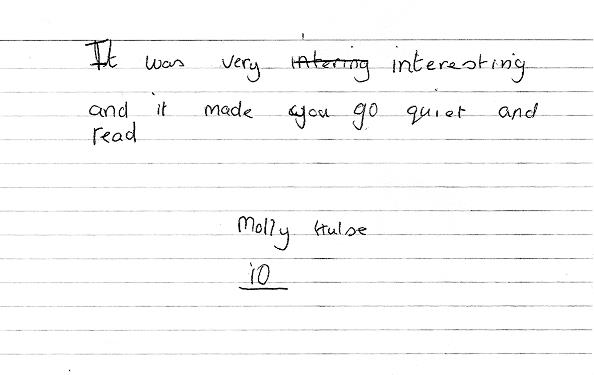 It was very intering interesting
and it made you go quiet and
read
Molly Hulse
10